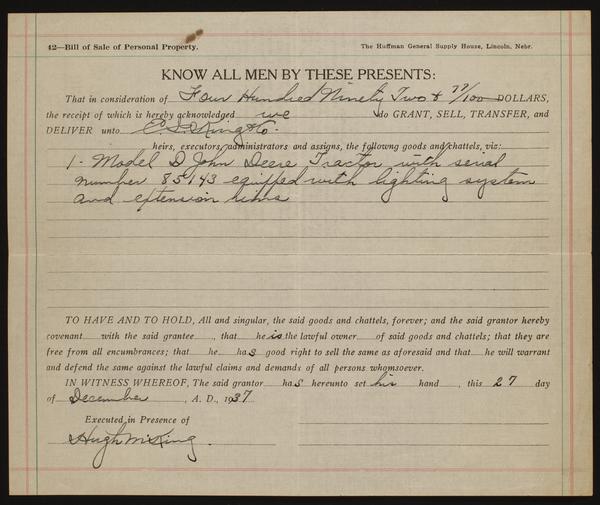 42—Bill of Sale of Personal Property. The Huffman General Supply House, Lincoln, Nebr.
KNOW ALL MEN BY THESE PRESENTS:
That in consideration of Four Hundred Ninety Two & 77/100 DOLLARS,
the receipt of which is hereby acknowledged we do GRANT, SELL, TRANSFER, and
DELIVER unto King & Co.
heirs, executors, administrators and assigns, the followng goods and chattels, viz:
1 - Model D John Deere Tractor with serial
number 85143 equipped with lighting system
and extension rims
TO HAVE AND TO HOLD, All and singular, the said goods and chattels, forever; and the said grantor hereby
covenant with the said grantee , that he is the lawful owner of said goods and chattels; that they are
free from all encumbrances; that he has good right to sell the same as aforesaid and that he will warrant
and defend the same against the lawful claims and demands of all persons whomsoever.
IN WITNESS WHEREOF, The said grantor has hereunto set his hand , this 27 day
of December , A. D., 1937
Executed in Presence of
Hugh McKing .